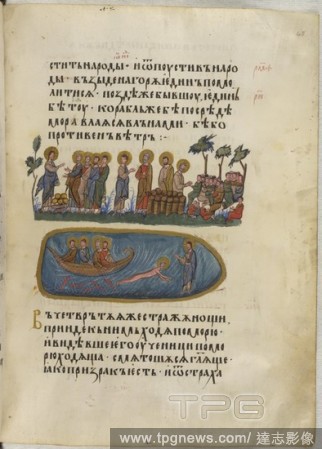 стить народы · и ѿпоустивъ наро
ды · възыде на горѫ ѥдинъ помо
литисѧ · позде же бывшоу, ѥдинь
бѣ тоу · корабль же бѣ посрѣдѣ
морꙗ валꙗꙗсѧ вльнами · бѣ бо
противень вѣтрь :·
Въ четврьтѫѧ же стражѫ нощи,
прииде кь нимь ходѧ по морю,
и видѣвше ѥго оученици по мо
рю ходѧща · смѧтошѧсѧ гл҃ѧще ·
ꙗко призракь ѥсть · и ѿ страха
TPG
www.tpgnews.com / 達志影像